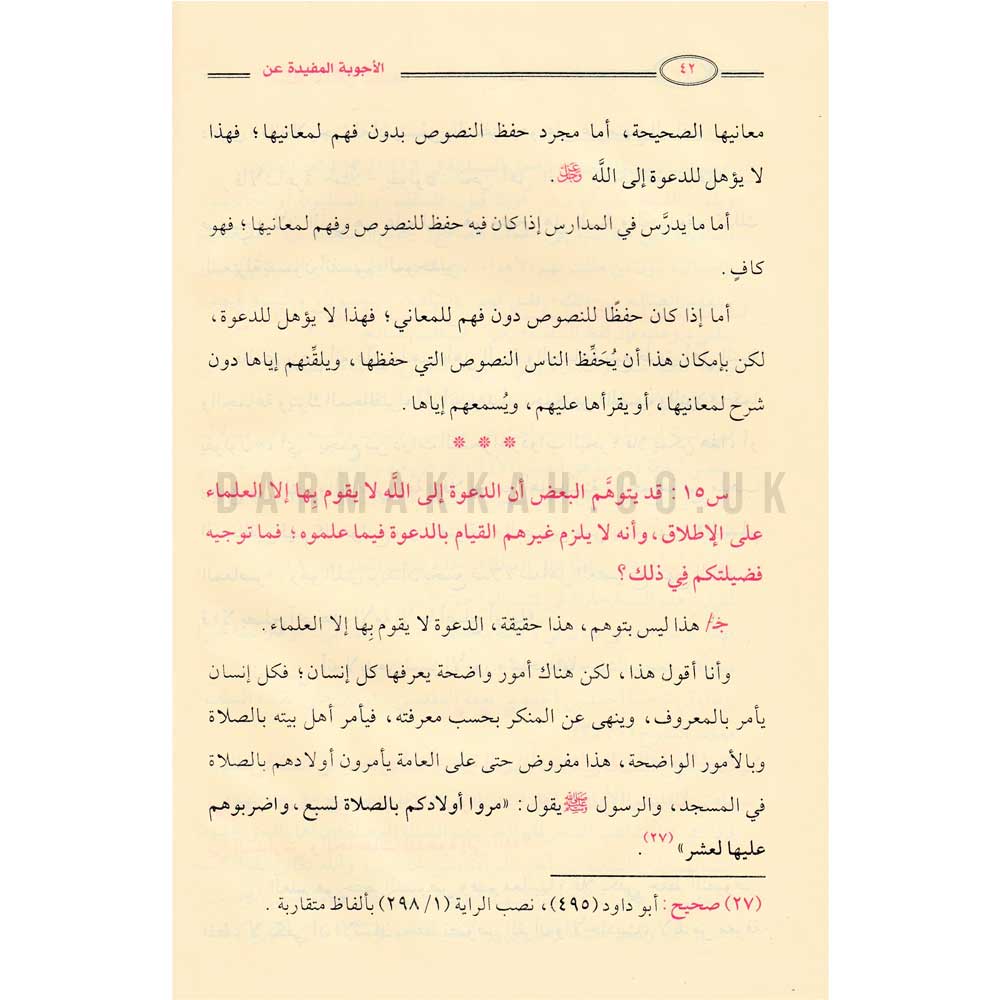 ٤٢ الأجوبة المفيدة عن
معانيها الصحيحة، أما مجرد حفظ النصوص بدون فهم لمعانيها؛ فهذا
لا يؤهل للدعوة إلى اللَّه ﷿.
أما ما يدرَّس في المدارس إذا كان فيه حفظ للنصوص وفهم لمعانيها؛ فهو
كافٍ.
أما إذا كان حفظًا للنصوص دون فهم للمعاني؛ فهذا لا يؤهل للدعوة،
لكن بإمكان هذا أن يُحَفِّظ الناس النصوص التي حفظها، ويلقِّنهم إياها دون
شرح لمعانيها، أو يقرأها عليهم، ويُسمعهم إياها.
* * *
DARMAKKAH.CO.UK
س١٥: قد يتوهَّم البعض أن الدعوة إلى اللَّه لا يقوم بِها إلا العلماء
على الإطلاق، وأنه لا يلزم غيرهم القيام بالدعوة فيما علموه؛ فما توجيه
فضيلتكم فِي ذلك؟
جـ/ هذا ليس بتوهم، هذا حقيقة، الدعوة لا يقوم بِها إلا العلماء.
وأنا أقول هذا، لكن هناك أمور واضحة يعرفها كل إنسان؛ فكل إنسان
يأمر بالمعروف، وينهى عن المنكر بحسب معرفته، فيأمر أهل بيته بالصلاة
وبالأمور الواضحة، هذا مفروض حتى على العامة يأمرون أولادهم بالصلاة
في المسجد، والرسول ﷺ يقول: «مروا أولادكم بالصلاة لسبع، واضربوهم
عليها لعشر»(٢٧).
(٢٧) صحيح: أبو داود (٤٩٥)، نصب الراية (١/ ٢٩٨) بألفاظ متقاربة.